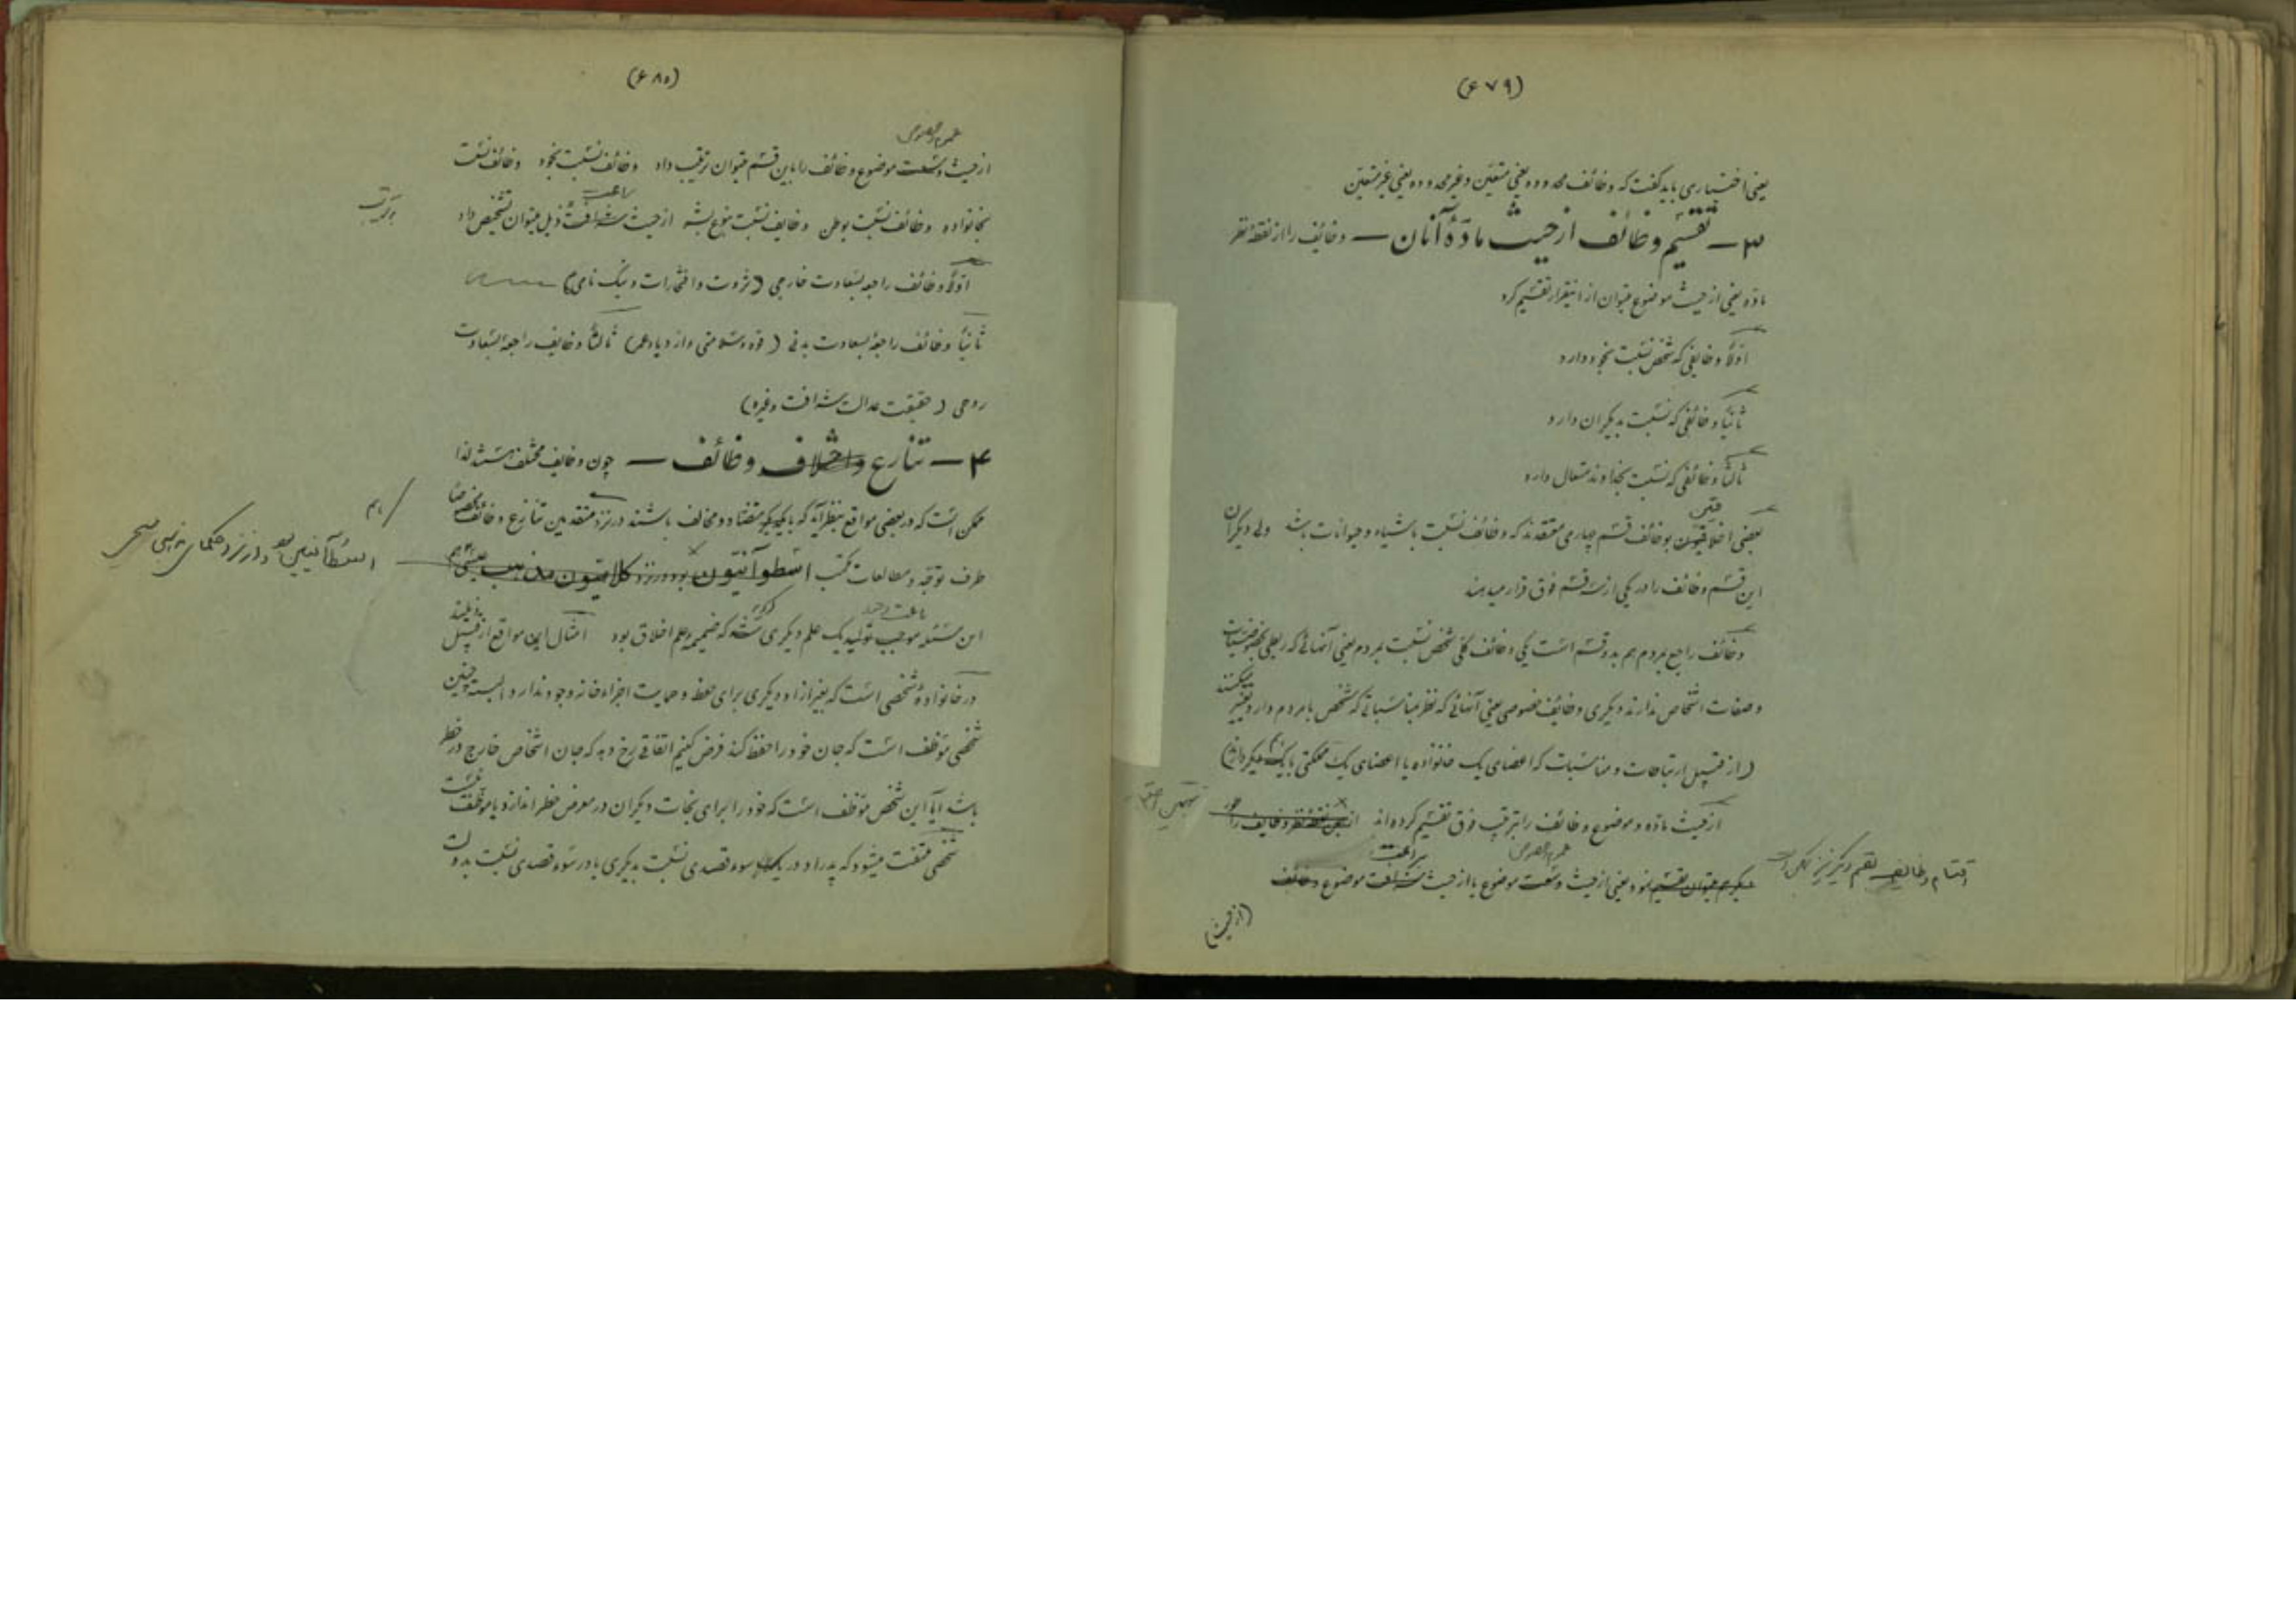 (۶۷۹)
یعنی اختیاری باید گفت که وظائف محدوده یعنی متعین و غیر محدوده یعنی غیر متعین
۳ — تقسیم وظائف از حیث مادهٔ آنان — وظائف را از نقطه نظر
ماده یعنی از حیث موضوع میتوان از اینقرار تقسیم کرد
اولاً وظایفی که شخص نسبت بخود دارد
ثانیاً وظائفی که نسبت بدیگران دارد
ثالثاً وظائفی که نسبت بخداوند متعال دارد
بعضی اخلاقیون بوظائف قسم چهارمی معتقدند که وظائف نسبت باشیاء و حیوانات باشد ولی دیگران
این قسم وظائف را در یکی از سه قسم فوق قرار میدهند
وظائف راجع بمردم هم بدو قسم است یکی وظائف کلی شخص نسبت بمردم یعنی آنهائی که ربطی بخصوصیات
و صفات اشخاص ندارند دیگری وظائف خصوصی یعنی آنهائی که نظر بمناسباتی که شخص با مردم دارد تغییر میکنند
(از قبیل ارتباطات و مناسبات که اعضای یک خانواده یا اعضای یک مملکتی با یکدیگر دارند)
از حیث ماده و موضوع وظائف را بترتیب فوق تقسیم کرده‌اند از نقطه نظر وظایف را
اقسام وظائف تقسیم دیگر نیز
دیگر هم میتوان تقسیم نمود یعنی از حیث وسعت موضوع یا از حیث شرافت موضوع وظائف
(از حیث)
(۶۸۰)
عموم و خصوص
از حیث وسعت موضوع وظائف را باین قسم میتوان ترتیب داد وظائف نسبت بخود وظائف نسبت
بخانواده وظائف نسبت بوطن وظایف نسبت بنوع بشر از حیث شرافت ذیل میتوان تشخیص داد
اولاً وظائف راجعه بسعادت خارجی (ثروت و افتخارات و نیک نامی)
ثانیاً وظائف راجعه بسعادت بدنی (قوه و سلامتی و ازدیاد عمر) ثالثاً وظایف راجعه بسعادت
روحی (حقیقت عدالت شرافت و غیره)
۴ — تنازع و اختلاف وظائف — چون وظایف مختلف هستند لذا
ممکن است که در بعضی مواقع بنظر آید که با یکدیگر متضاد و مخالف باشند در نزد متقدمین تنازع وظائف مخصوصاً
طرف توجه و مطالعات کتب اسطوآنیون بود و در نزد کلامیون مذهب
اسطآنیین بود و در نزد حکمای مذهبی مسیحی هم
این مسئله موجب تولید یک علم دیگری شد که ضمیمه علم اخلاق بود امثال این مواقع از قبیل
در خانواده شخصی است که بغیر از او دیگری برای حفظ و حمایت اجزاء خانه وجود ندارد البته چنین
شخصی موظف است که جان خود را حفظ کند فرض کنیم اتفاقی رخ دهد که جان اشخاص خارج در خطر
باشد آیا این شخص موظف است که خود را برای نجات دیگران در معرض خطر اندازد یا موظف نیست
شخصی ملتفت میشود که پدر او در سوء قصدی نسبت بدیگری یا در سوء قصدی نسبت بدولت